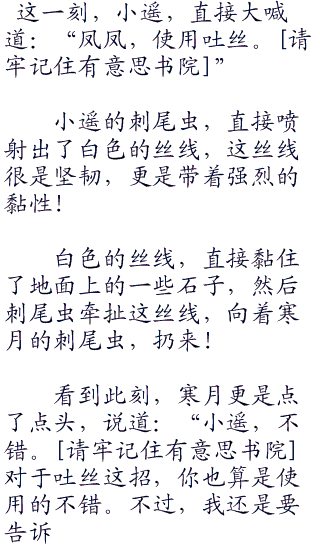 这一刻，小遥，直接大喊
道：“凤凤，使用吐丝。[请
牢记住有意思书院]”
小遥的刺尾虫，直接喷
射出了白色的丝线，这丝线
很是坚韧，更是带着强烈的
黏性！
白色的丝线，直接黏住
了地面上的一些石子，然后
刺尾虫牵扯这丝线，向着寒
月的刺尾虫，扔来！
看到此刻，寒月更是点
了点头，说道：“小遥，不
错。[请牢记住有意思书院]
对于吐丝这招，你也算是使
用的不错。不过，我还是要
告诉